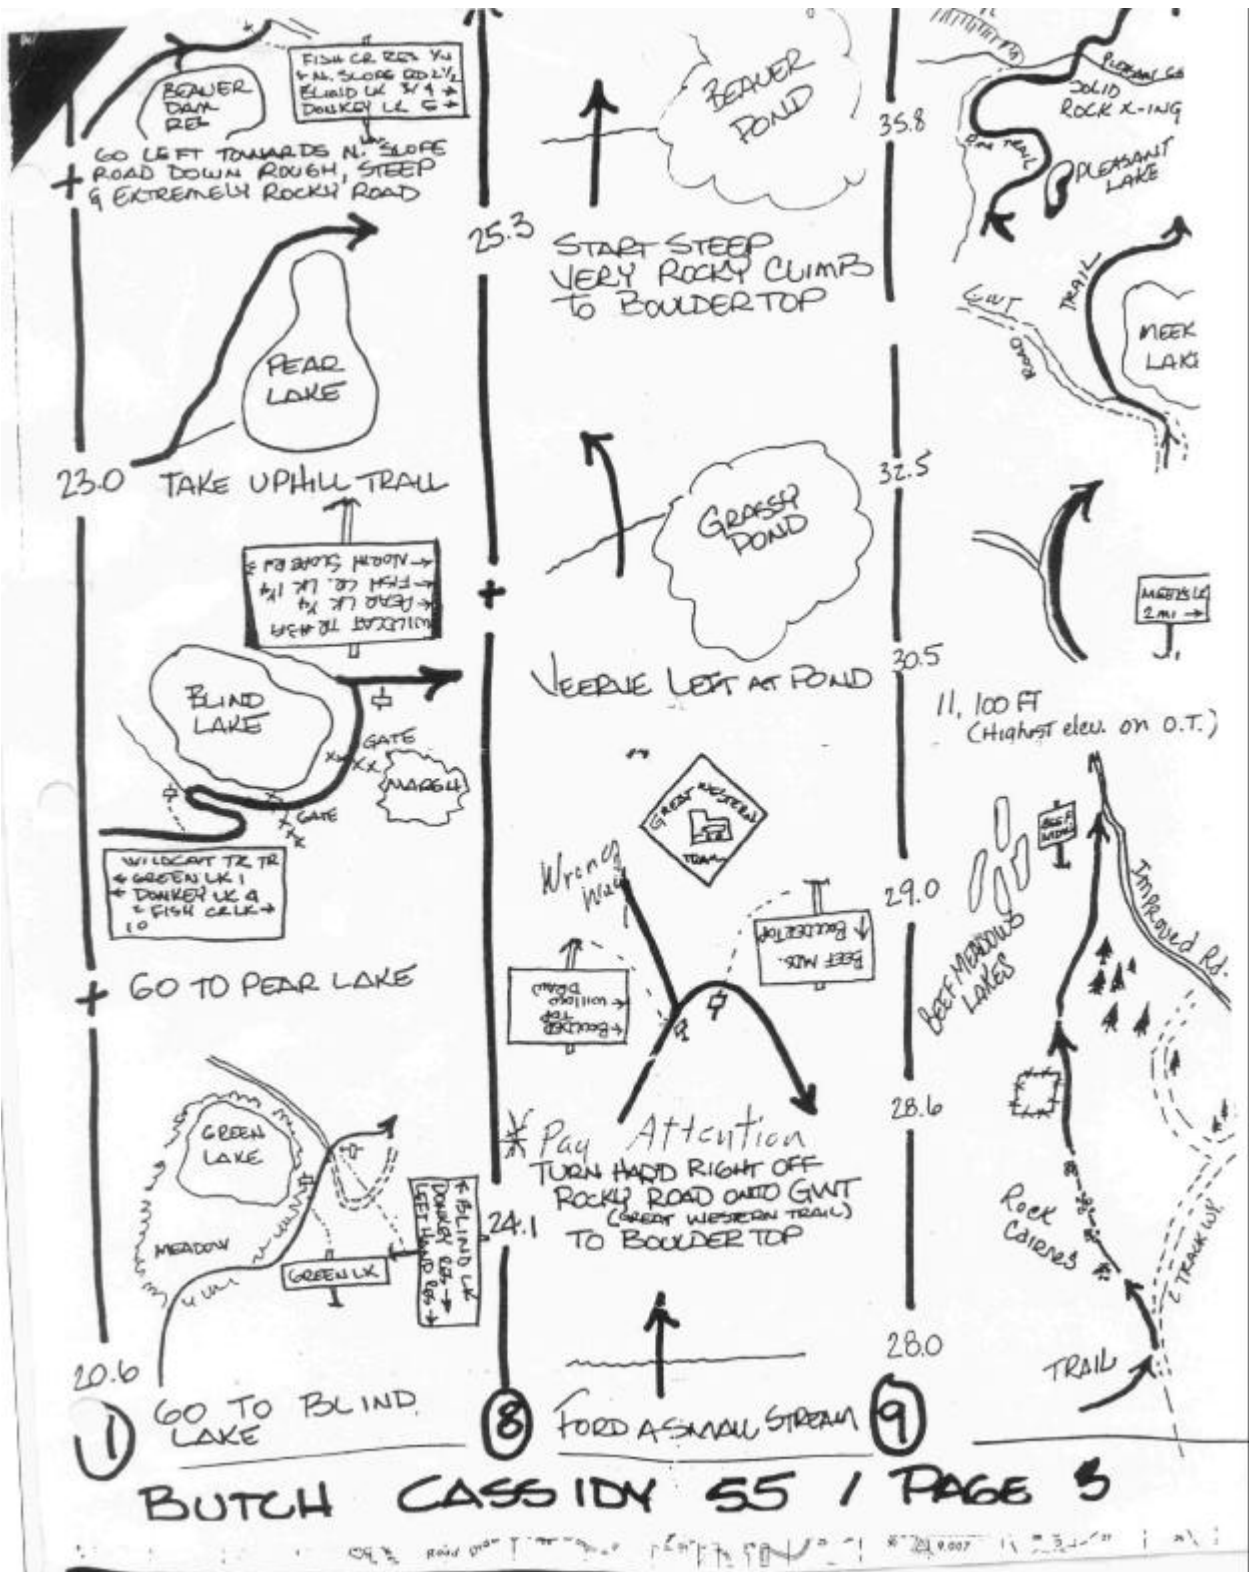 FISH CR RES 1/4
N. SLOPE RD 2 1/2
BLIND LK 3/4 →
DONKEY LK 5 →
BEAVER
DAM
RES
GO LEFT TOWARDS N. SLOPE
ROAD DOWN ROUGH, STEEP
& EXTREMELY ROCKY ROAD
PEAR
LAKE
23.0 TAKE UPHILL TRAIL
WILDCAT TR #3A
← PEAR LK 1/4
← FISH CR. LK 1 1/4
← NORTH SLOPE RD 3
BLIND
LAKE
GATE
MARSH
GATE
WILDCAT TR TR
← GREEN LK 1
← DONKEY LK 4
FISH CR LK →
10
GO TO PEAR LAKE
GREEN
LAKE
MEADOW
GREEN LK
↑ BLIND LK
DONKEY RES →
LEFT HAND RES →
20.6
GO TO BLIND
LAKE
1
BEAVER
POND
25.3
START STEEP
VERY ROCKY CLIMB
TO BOULDER TOP
GRASSY
POND
VEERVE LEFT AT POND
GREAT WESTERN
TRAIL
Wrong
Way
BEEF MDS.
BOULDER TOP
← BOULDER
TOP
← WILLOW
DRAW
* Pay Attention
TURN HARD RIGHT OFF
ROCKY ROAD ONTO GWT
(GREAT WESTERN TRAIL)
TO BOULDER TOP
24.1
FORD A SMALL STREAM
8
35.8
SOLID
ROCK X-ING
TRAIL
PLEASANT
LAKE
GWT
ROAD
TRAIL
MEEK
LAKE
32.5
MEEKS LK
2 MI →
30.5
11,100 FT
(Highest elev. on O.T.)
BEEF
MDW
Improved Rd.
29.0
BEEF MEADOWS
LAKES
28.6
Rock
Cairnes
2 TRACK WY.
28.0
TRAIL
9
BUTCH CASSIDY 55 / PAGE 3